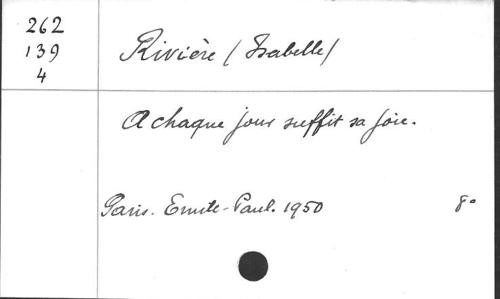 262
139
4
Rivière (Isabelle)
A chaque jour suffit sa joie.
Paris. Emile-Paul. 1950 8°